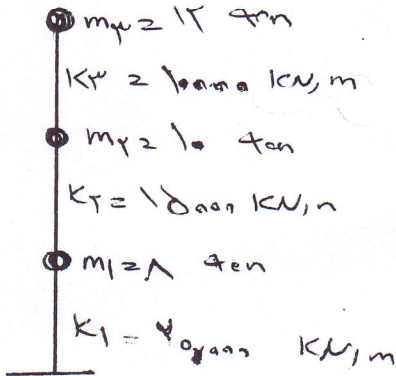 m۳ = ۱۲ ton
K۳ = ۱۰۰۰۰ KN/m
m۲ = ۱۰ ton
K۲ = ۱۵۰۰۰ KN/m
m۱ = ۸ ton
K۱ = ۲۰,۰۰۰ KN/m